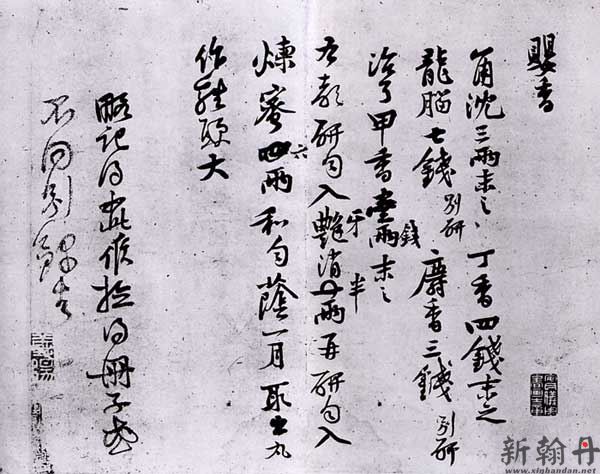 嬰香
角沈三兩末之 丁香四錢末之
龍腦七錢別研 麝香三錢別研
治了甲香壹兩錢末之
右都研匀入艷牙消半兩再研匀入
煉蜜四六兩和匀蔭一月取出丸
作雞頭大
略記得如此候檢得冊子或
不同別錄去
新翰丹
www.xinhandan.net